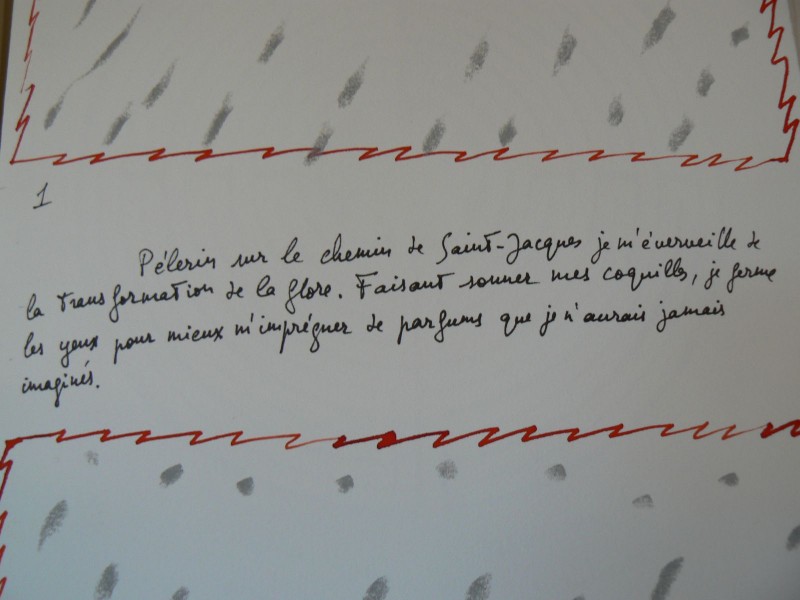 1
Pélerin sur le chemin de Saint-Jacques je m'émerveille de
la transformation de la flore. Faisant sonner mes coquilles, je ferme
les yeux pour mieux m'imprégner de parfums que je n'aurais jamais
imaginés.